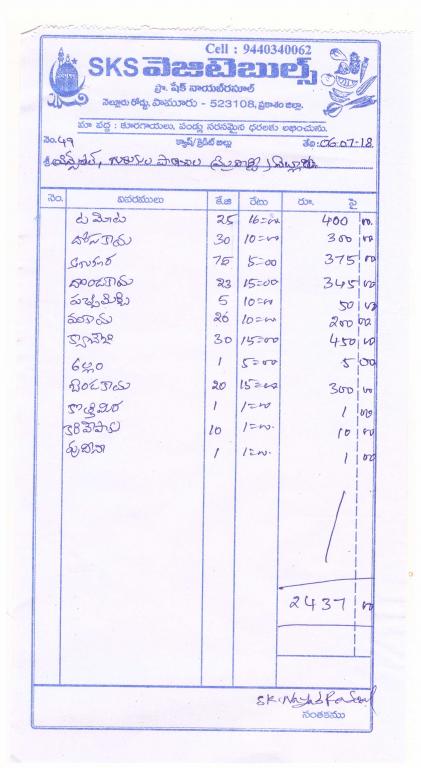 Cell : 9440340062
SKS వెజిటెబుల్స్
ప్రొ. షేక్ నాయబ్‌రసూల్
నెల్లూరు రోడ్డు, పామూరు - 523108, ప్రకాశం జిల్లా.
మా వద్ద : కూరగాయలు, పండ్లు సరసమైన ధరలకు లభించును.
నెం. 49 క్యాష్/క్రెడిట్ బిల్లు తేది: 06.07.18
శ్రీ
నెం. వివరములు కే.జి రేటు రూ. పై
టమోటా 25 16=00 400 00
దోసకాయ 30 10=00 300 00
75 5=00 375 00
దొండకాయ 23 15=00 345 00
పచ్చిమిర్చి 5 10=00 50 00
20 10=00 200 00
30 15=00 450 00
అల్లం 1 5=00 5 00
బెండకాయ 20 15=00 300 00
కొత్తిమీర 1 1=00 1 00
కరివేపాకు 10 1=00 10 00
పుదీనా 1 1=00 1 00
2437 00
SK. Nayab Rasool
సంతకము